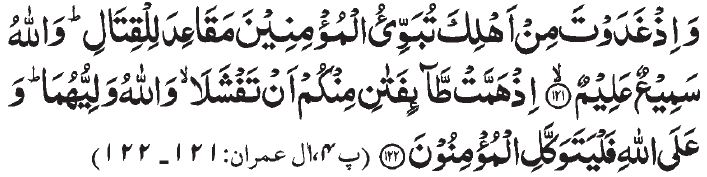 وَ اِذْ غَدَوْتَ مِنْ اَهْلِكَ تُبَوِّئُ الْمُؤْمِنِیْنَ مَقَاعِدَ لِلْقِتَالِؕ-وَ اللّٰهُ
سَمِیْعٌ عَلِیْمٌۙ۝۱۲۱ اِذْ هَمَّتْ طَّآىٕفَتٰنِ مِنْكُمْ اَنْ تَفْشَلَاۙ-وَ اللّٰهُ وَلِیُّهُمَاؕ-وَ
عَلَى اللّٰهِ فَلْیَتَوَكَّلِ الْمُؤْمِنُوْنَ۝۱۲۲ (پ۴،اٰل عمران:۱۲۱۔۱۲۲)